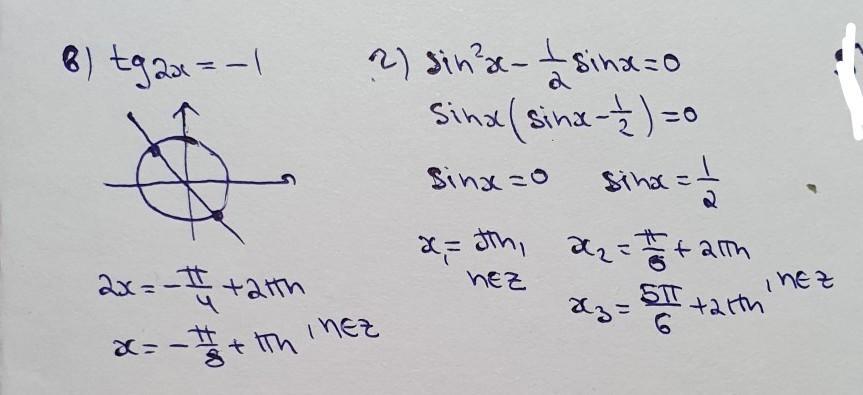 в) tg2x = -1
2x = -π/4 + 2πn
x = -π/8 + πn, n∈Z
г) sin²x - 1/2 sinx = 0
sinx(sinx - 1/2) = 0
sinx = 0 sinx = 1/2
x₁ = πn, x₂ = π/6 + 2πn
n∈Z
x₃ = 5π/6 + 2πn, n∈Z